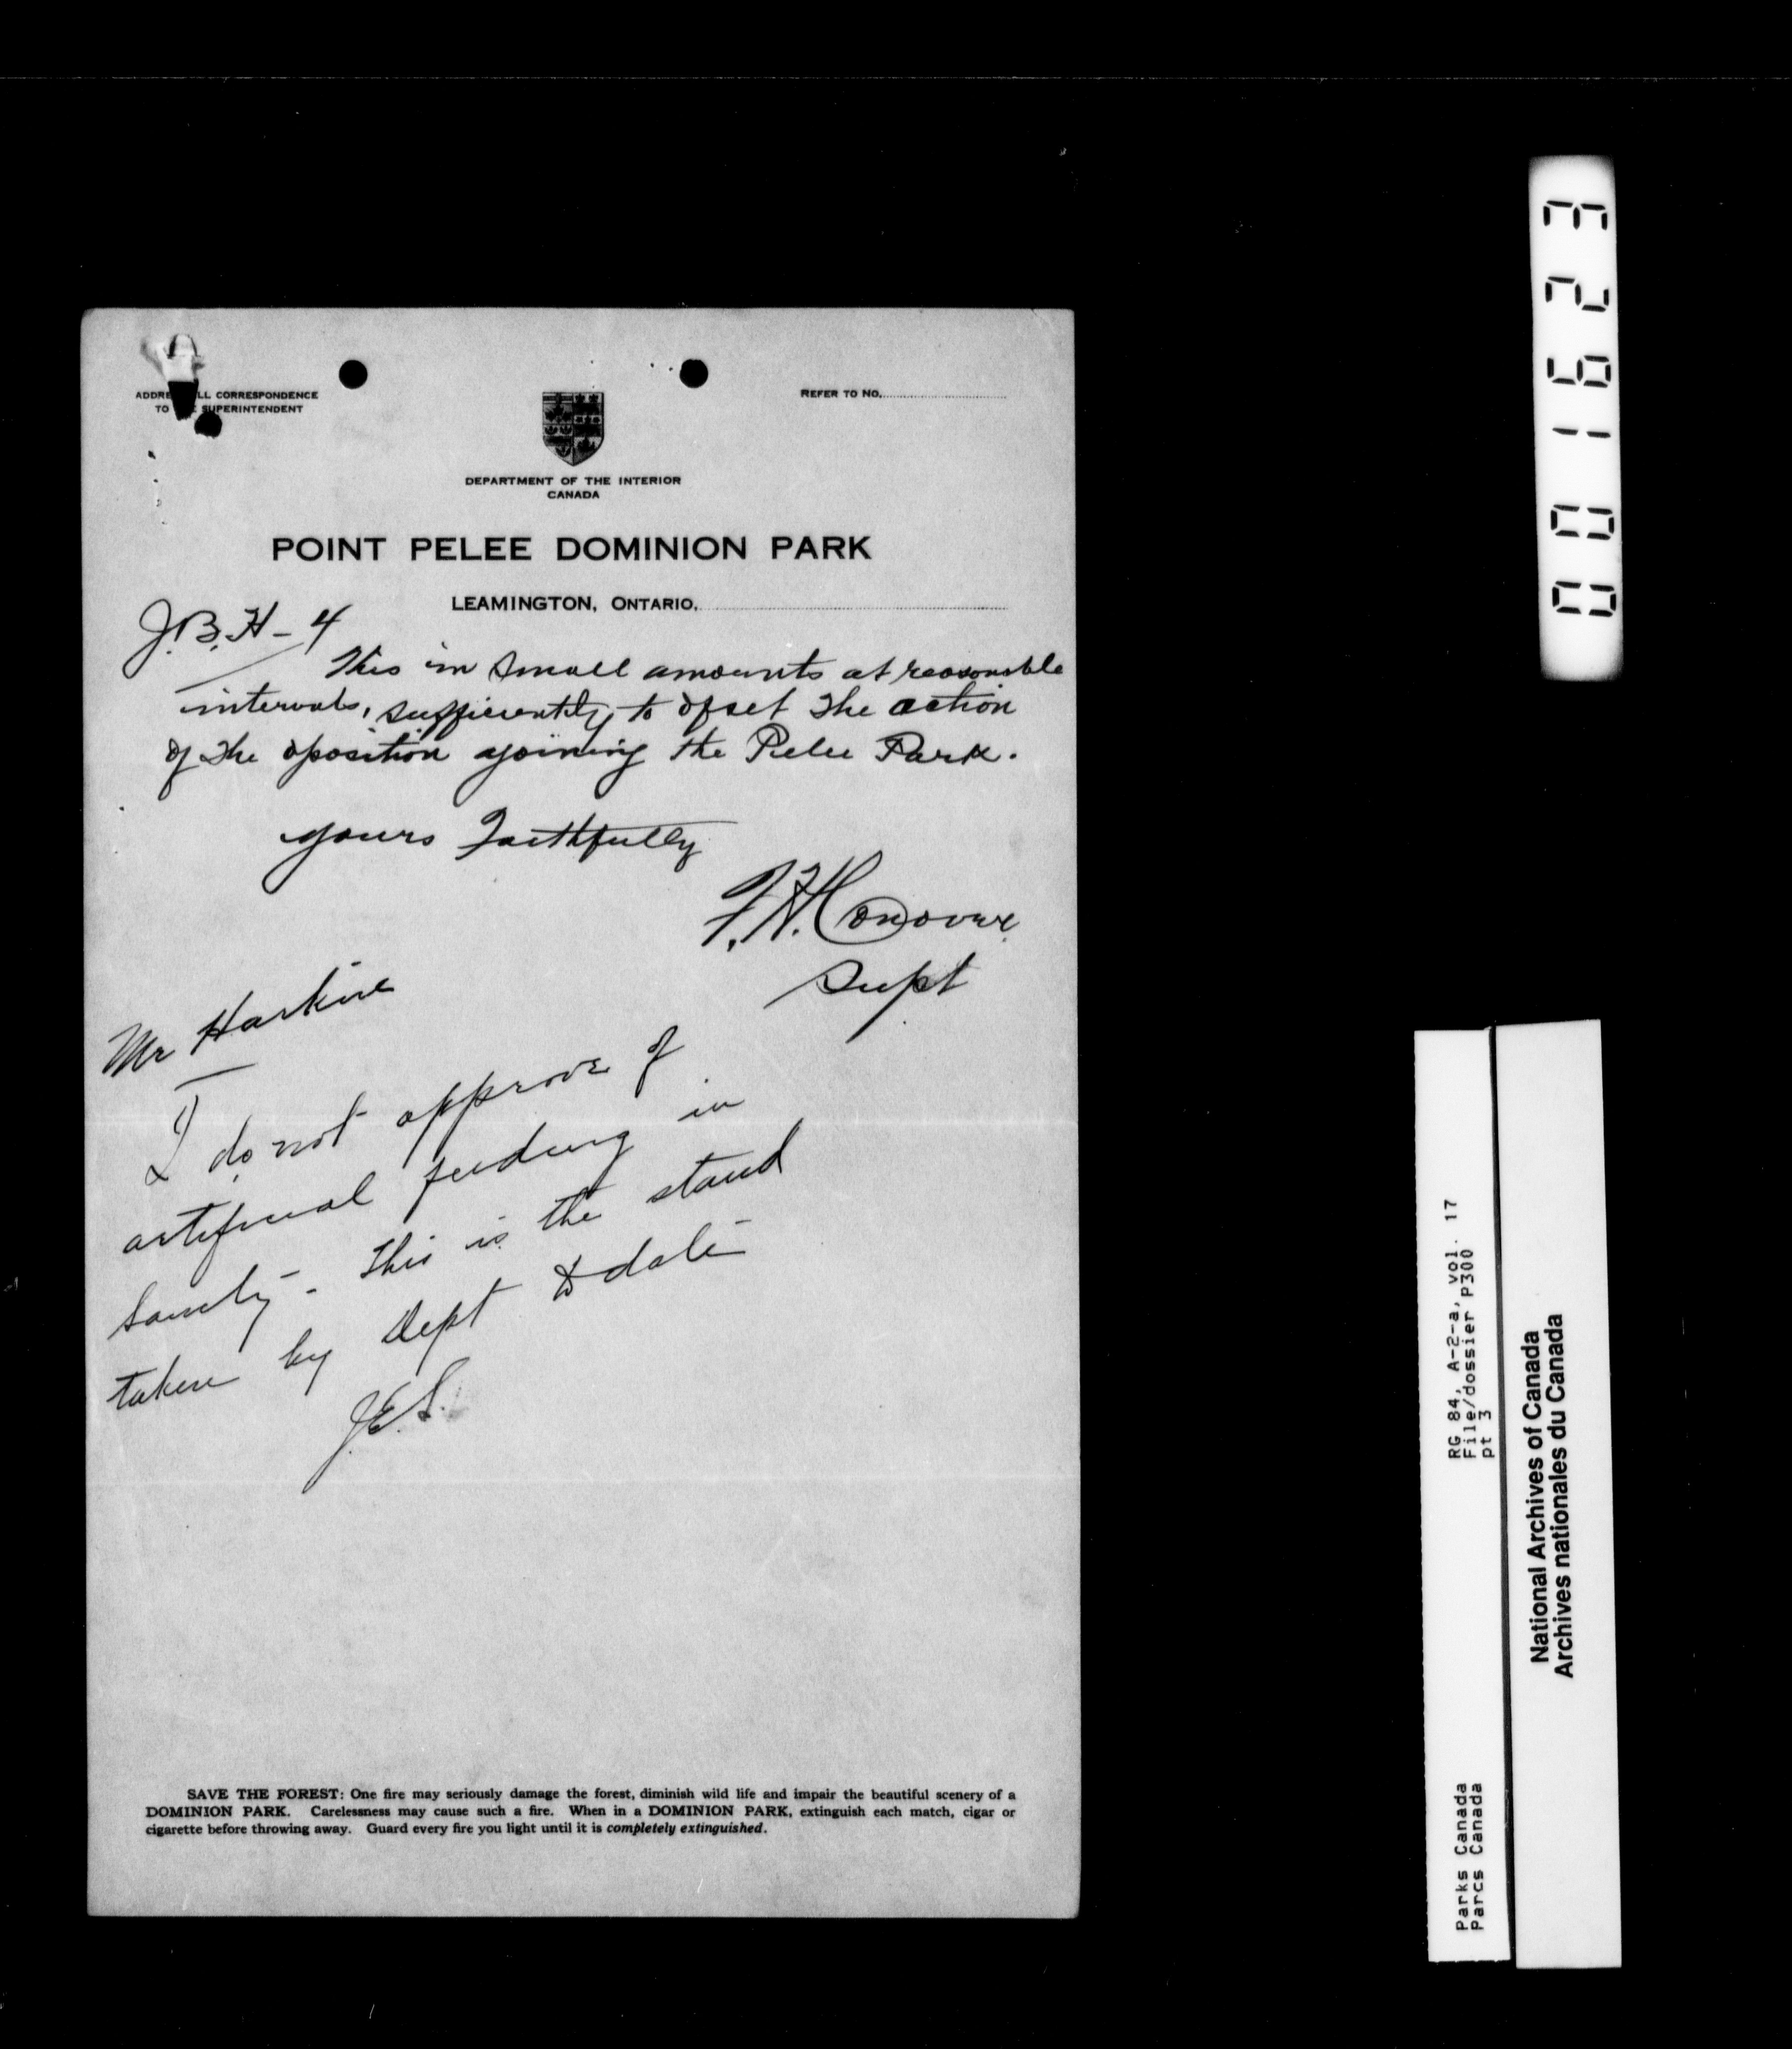 ADDRE LL CORRESPONDENCE
TO E SUPERINTENDENT
REFER TO NO.
DEPARTMENT OF THE INTERIOR
CANADA
POINT PELEE DOMINION PARK
LEAMINGTON, ONTARIO,
J.B.H - 4
This in small amounts at reasonable
intervals, sufficiently to ofset the action
of the oposition ajoining the Pelee Park.
yours Faithfully
F.H. Conover
Supt
Mr Harkin
I do not approve of
artificial feeding in
. This is the stand
taken by Dept to date
J.E.S.
SAVE THE FOREST: One fire may seriously damage the forest, diminish wild life and impair the beautiful scenery of a
DOMINION PARK. Carelessness may cause such a fire. When in a DOMINION PARK, extinguish each match, cigar or
cigarette before throwing away. Guard every fire you light until it is completely extinguished.
001623
RG 84, A-2-a, vol. 17
File/dossier P300
pt 3
Parks Canada
Parcs Canada
National Archives of Canada
Archives nationales du Canada